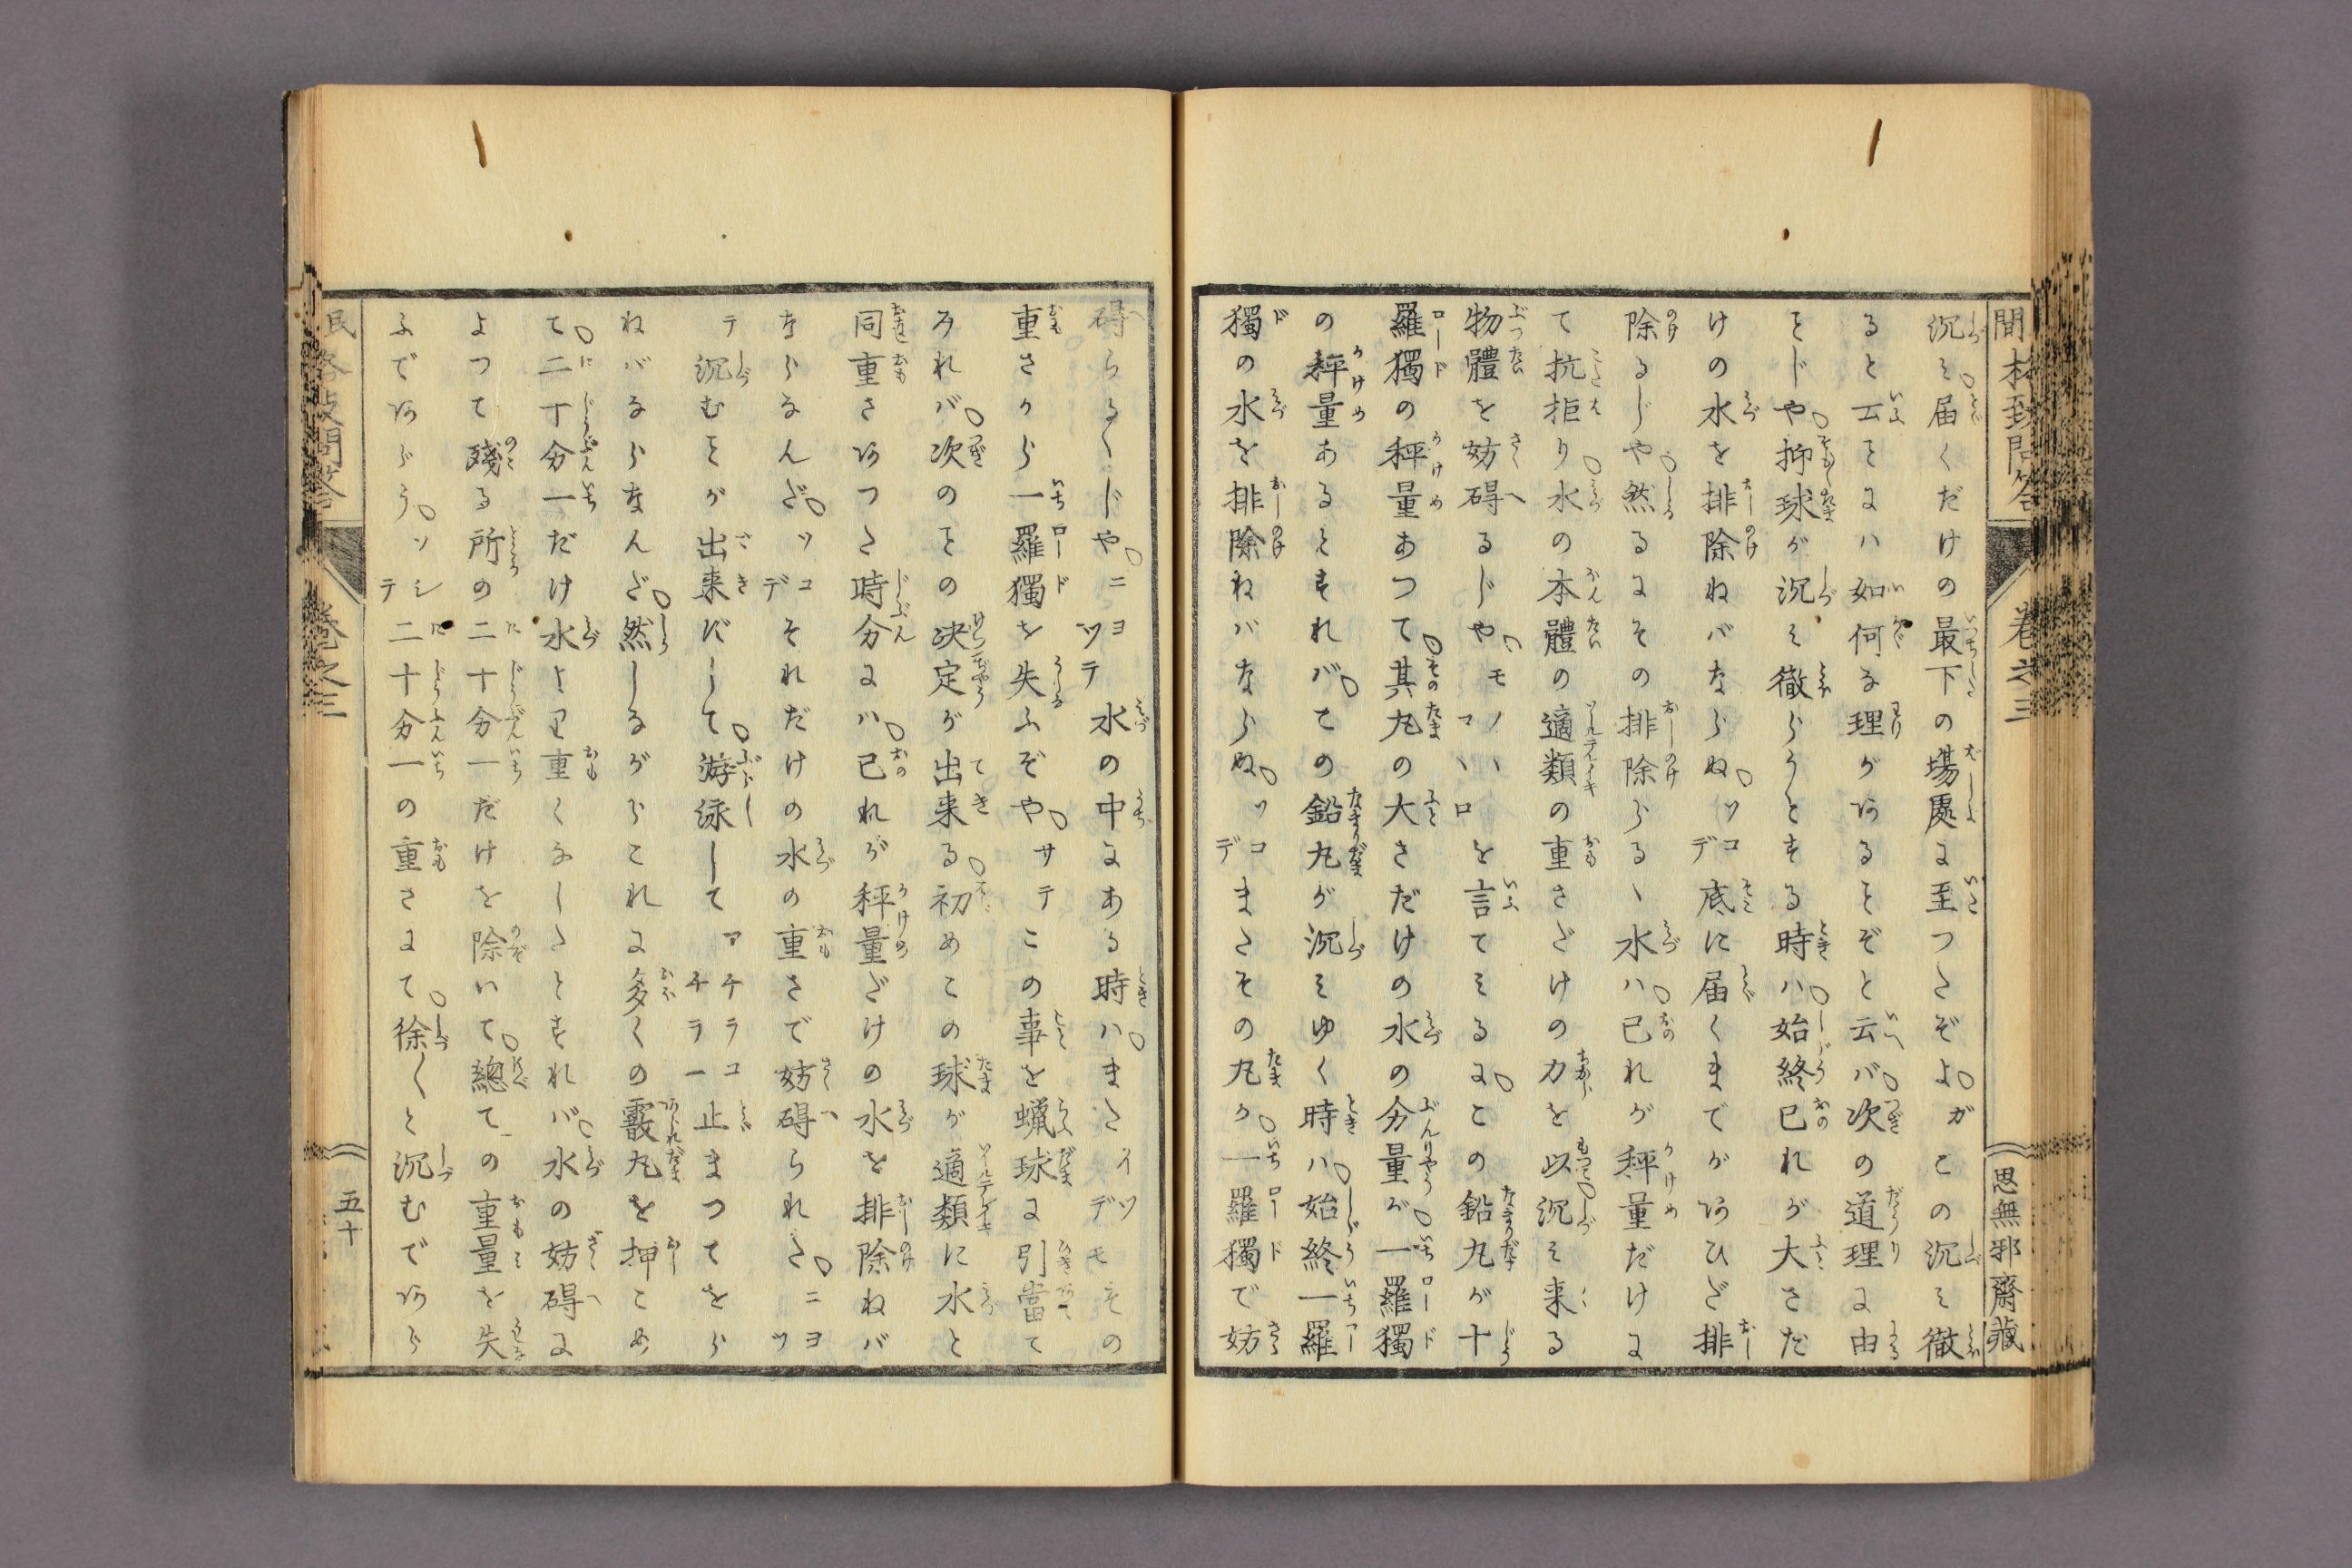 沉み届くだけの最下の場處に至つたぞよガこの沉み徹
ると云ことハ如何る理があることぞと云バ次の道理に由
ことじや抑球が沉み徹らうとする時ハ始終已れが大さだ
けの水を排除ねバならぬソコデ底に届くまでがあひだ排
除るじや然るにその排除らるヽ水ハ已れが秤量だけに
て抗拒り水の本體の適類の重さだけの力を以沉み来る
物體を妨碍るじやモノハマヽロを言てみるにこの鉛丸が十
羅獨の秤量あつて其丸の大さだけの水の分量が一羅獨
の秤量あるとすれバこの鉛丸が沉みゆく時ハ始終一羅
獨の水を排除ねバならぬソコデまたその丸が一羅獨で妨
碍らるヽじやニヨツテ水の中にある時ハまたイツデモその
重さから一羅獨を失ふぞやサテこの事を蝋球に引當て
みれバ次のことの决定が出来る初めこの球が適類に水と
同重さあつた時分にハ已れが秤量だけの水を排除ねバ
ならなんだソコデそれだけの水の重さで妨碍られたニヨツ
テ沉むことが出来ずして游泳してアチラコチラー止まつてをら
ねバならなんだ然しながらこれに多くの霰丸を押こめ
て二十分一だけ水より重くなしたとすれバ水の妨碍に
よつて殘る所の二十分一だけを除いて總ての重量を失
ふであらうソシテ二十分一の重さにて徐〱と沉むであら
卷之三
思無邪齋藏
卷之三
五十